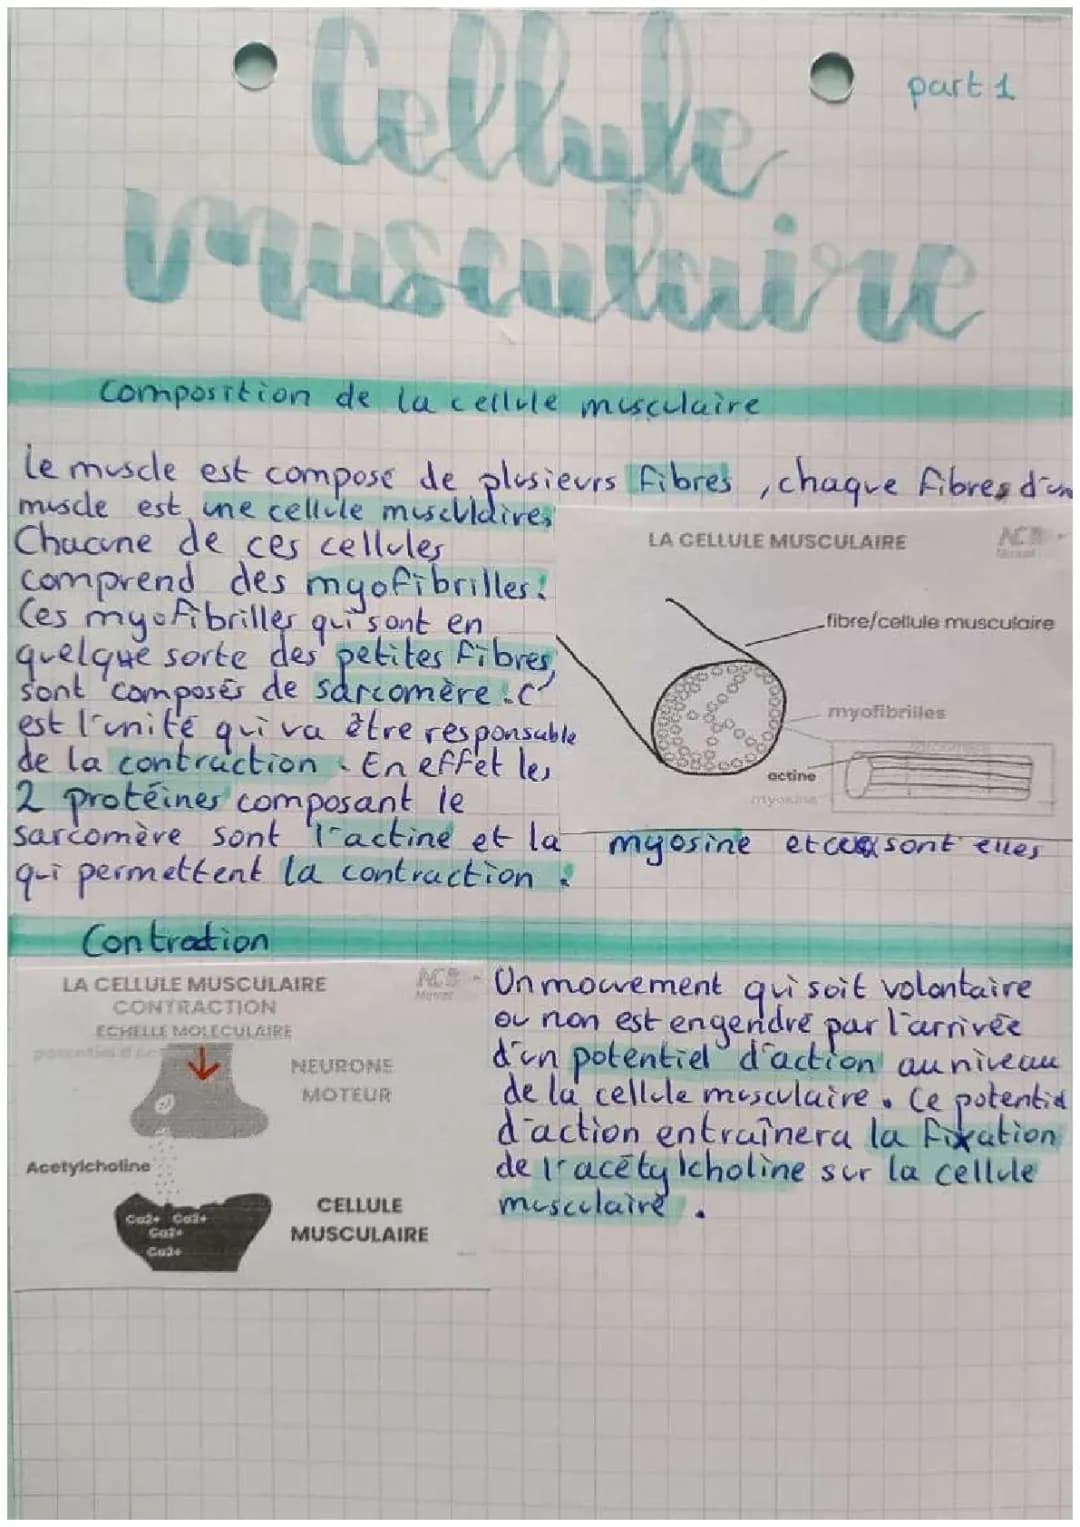 Cellule
part 1
musculaire
Composition de la cellule musculaire
Le muscle est composé de plusieurs fibres, chaque fibres d'un
muscle est une cellule musculaire,
Chacune de ces cellules
comprend des myofibrilles.
Ces myofibrilles qui sont en
quelque sorte des petites fibres,
sont composés de sarcomère. C'
est l'unité qui va être responsable
de la contraction. En effet les
2 protéines composant le
sarcomère sont l'actine et la myosine et sont elles
qui permettent la contraction.
LA CELLULE MUSCULAIRE
fibre/cellule musculaire
myofibrilles
sarcomère
actine
myosine
Contraction
LA CELLULE MUSCULAIRE
CONTRACTION
ECHELLE MOLECULAIRE
NEURONE
MOTEUR
Acetylcholine
Ca2+ Ca2+
Ca2+
Ca2+
CELLULE
MUSCULAIRE
Un mouvement qui soit volontaire
ou non est engendré par l'arrivée
d'un potentiel d'action au niveau
de la cellule musculaire. Ce potentiel
d'action entraînera la fixation
de l'acétylcholine sur la cellule
musculaire.